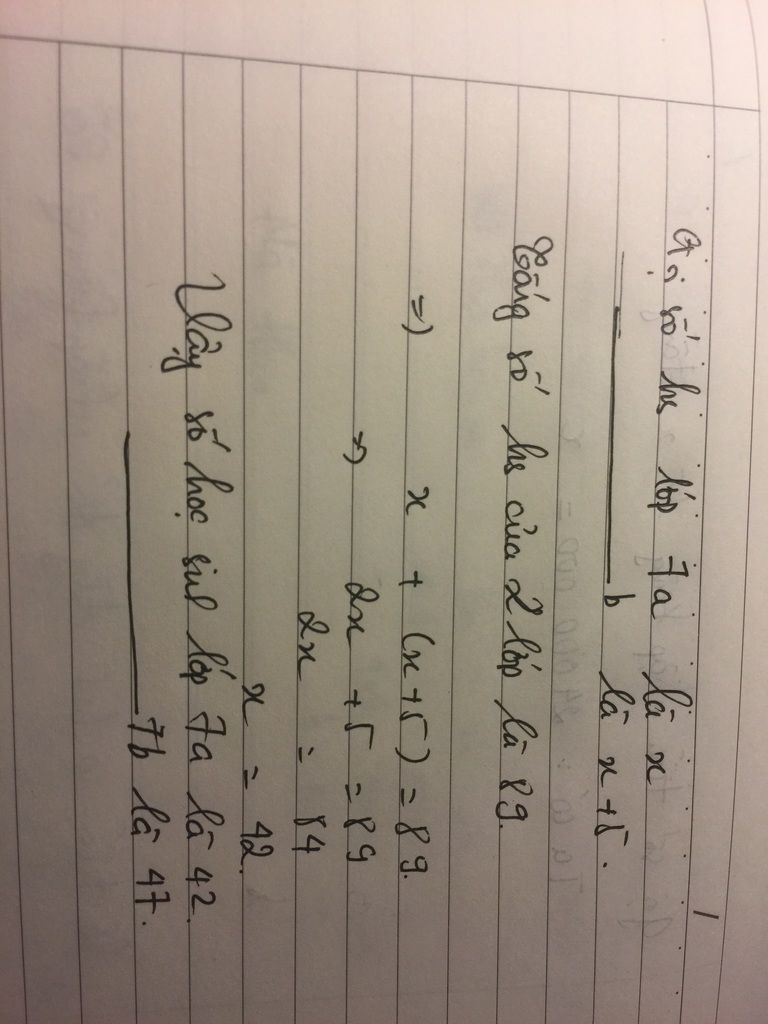 Gọi số hs lớp 7a là x
b là x+5.
Tổng số hs của 2 lớp là 89.
=) x + (x+5) = 89.
=) 2x + 5 = 89
2x = 84
x = 42.
Vậy số học sinh lớp 7a là 42.
7b là 47.